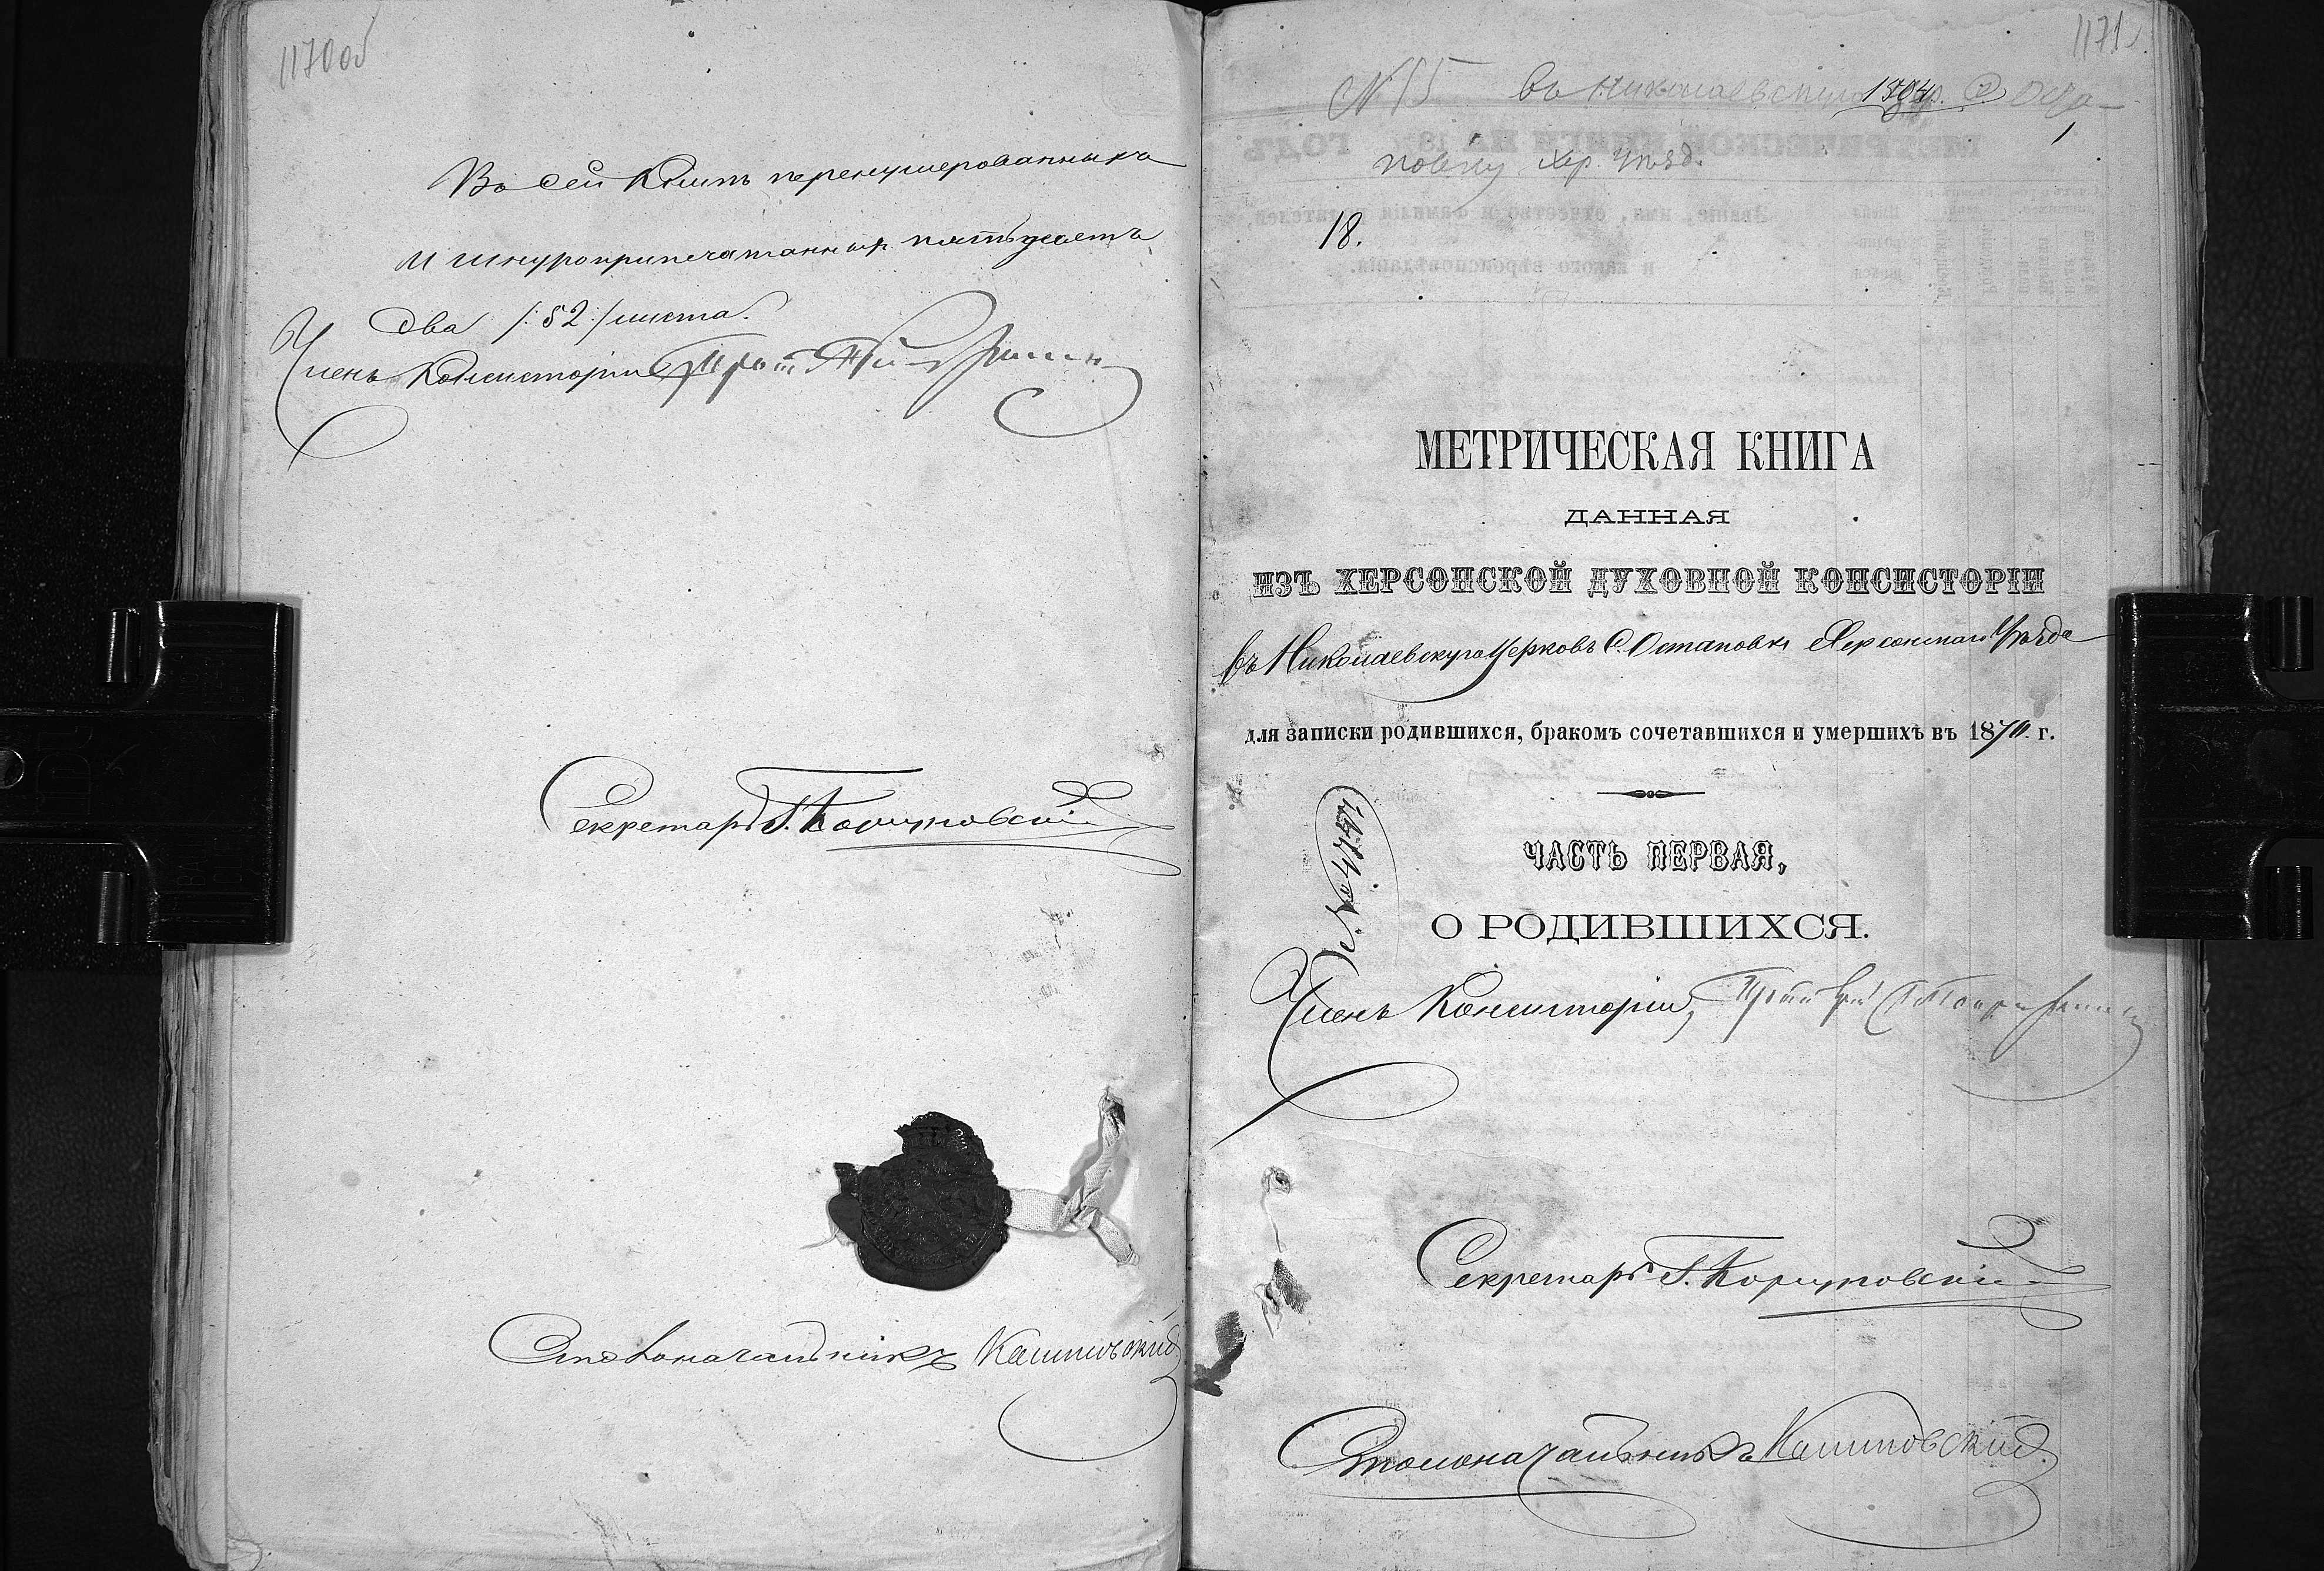 1170об
Въ сей книгѣ перенумерованныхъ
и шнуроприпечатанныхъ пятьдесятъ
два /:52:/ листа.
Членъ Консисторіи
Секретарь Г.
Столоначальникъ
1171
№ 15 въ Николаевскую с. Оста-
повку Хер. уѣзд.
1
18.
МЕТРИЧЕСКАЯ КНИГА
ДАННАЯ
ИЗЪ ХЕРСОНСКОЙ ДУХОВНОЙ КОНСИСТОРІИ
въ Николаевскую церковь с. Остаповки Херсонскаго уѣзда
для записки родившихся, бракомъ сочетавшихся и умершихъ въ 1870. г.
ЧАСТЬ ПЕРВАЯ,
О РОДИВШИХСЯ.
Членъ Консисторіи,
Секретарь Г.
Столоначальникъ